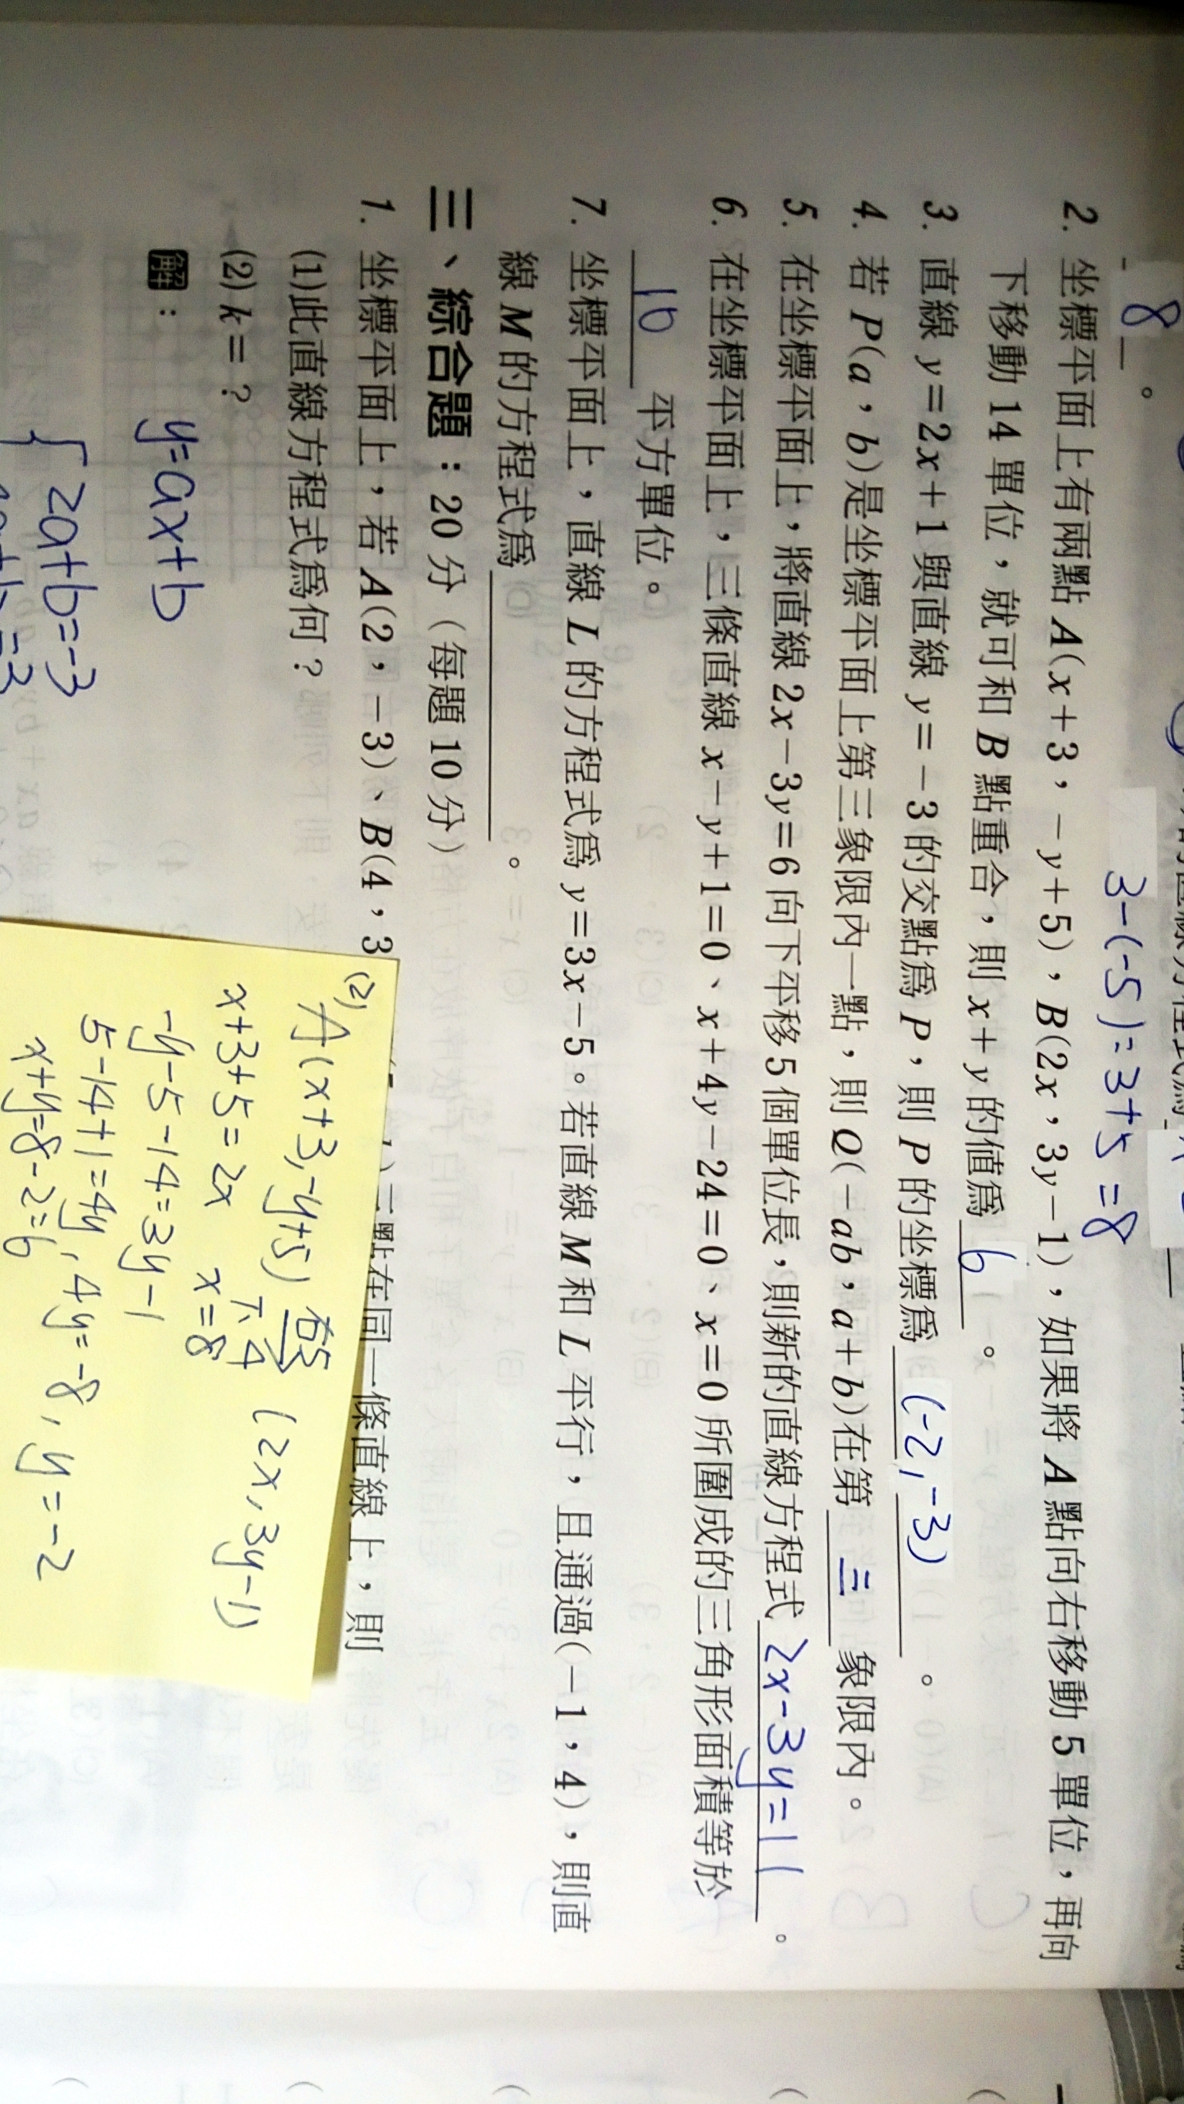 8。
3-(-5)=3+5=8
2. 坐標平面上有兩點 A(x+3,-y+5),B(2x,3y-1),如果將 A 點向右移動 5 單位,再向
下移動 14 單位,就可和 B 點重合,則 x+y 的值為 6 。
3. 直線 y=2x+1 與直線 y=-3 的交點為 P,則 P 的坐標為 (-2,-3) 。
4. 若 P(a,b)是坐標平面上第三象限內一點,則 Q(-ab,a+b)在第 三 象限內。
5. 在坐標平面上,將直線 2x-3y=6 向下平移 5 個單位長,則新的直線方程式 2x-3y=11 。
6. 在坐標平面上,三條直線 x-y+1=0、x+4y-24=0、x=0 所圍成的三角形面積等於
10 平方單位。
7. 坐標平面上,直線 L 的方程式為 y=3x-5。若直線 M 和 L 平行,且通過(-1,4),則直
線 M 的方程式為 。
三、綜合題:20 分(每題 10 分)
1. 坐標平面上,若 A(2,-3)、B(4,3 三點在同一條直線上,則
(1)此直線方程式為何?
(2) k=?
解:
y=ax+b
2a+b=-3
(2)
A(x+3,-y+5) 右5 下14 (2x,3y-1)
x+3+5=2x x=8
-y-5-14=3y-1
5-14+1=4y, 4y=-8, y=-2
x+y=8-2=6